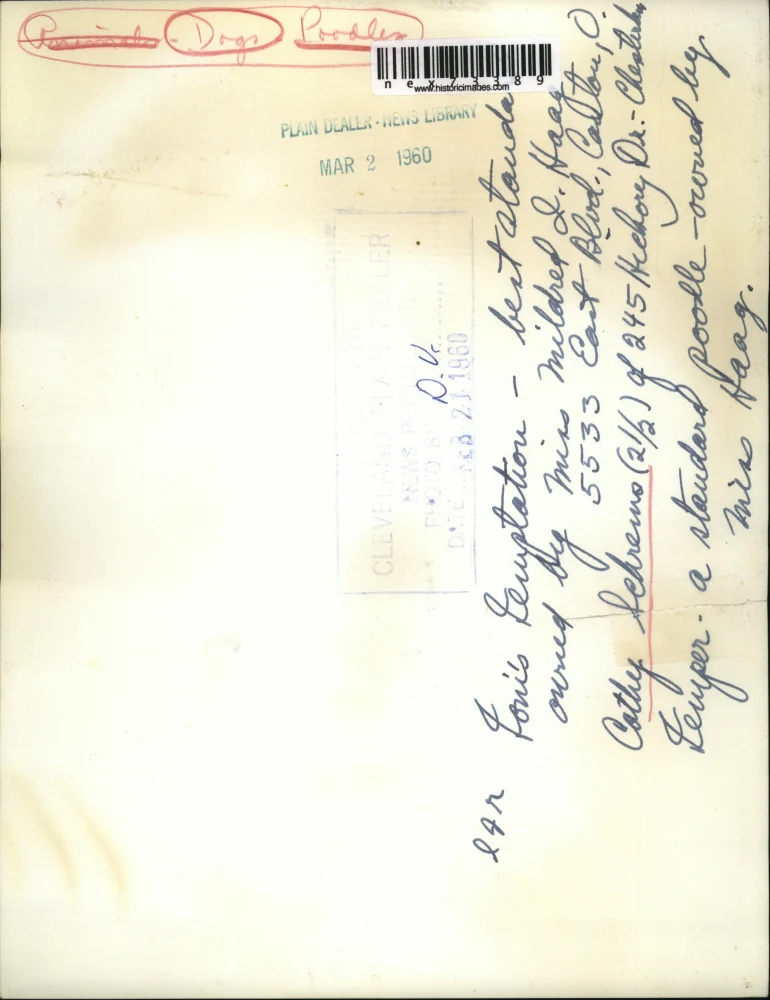 Animals - Dogs Poodles
nex73389
www.historicimages.com
PLAIN DEALER - NEWS LIBRARY
MAR 2 1960
CLEVELAND PLAIN DEALER
NEWS
PHOTO BY D.V.
DATE FEB 21 1960
l & r
Toni's Temptation - best standa
owned by Miss Mildred I. Haag
5533 East Blvd., Canton, O.
Cathy Schrems (2 1/2) of 245 Hickory Dr. -
Temper - a standard poodle - owned by
Miss Haag.